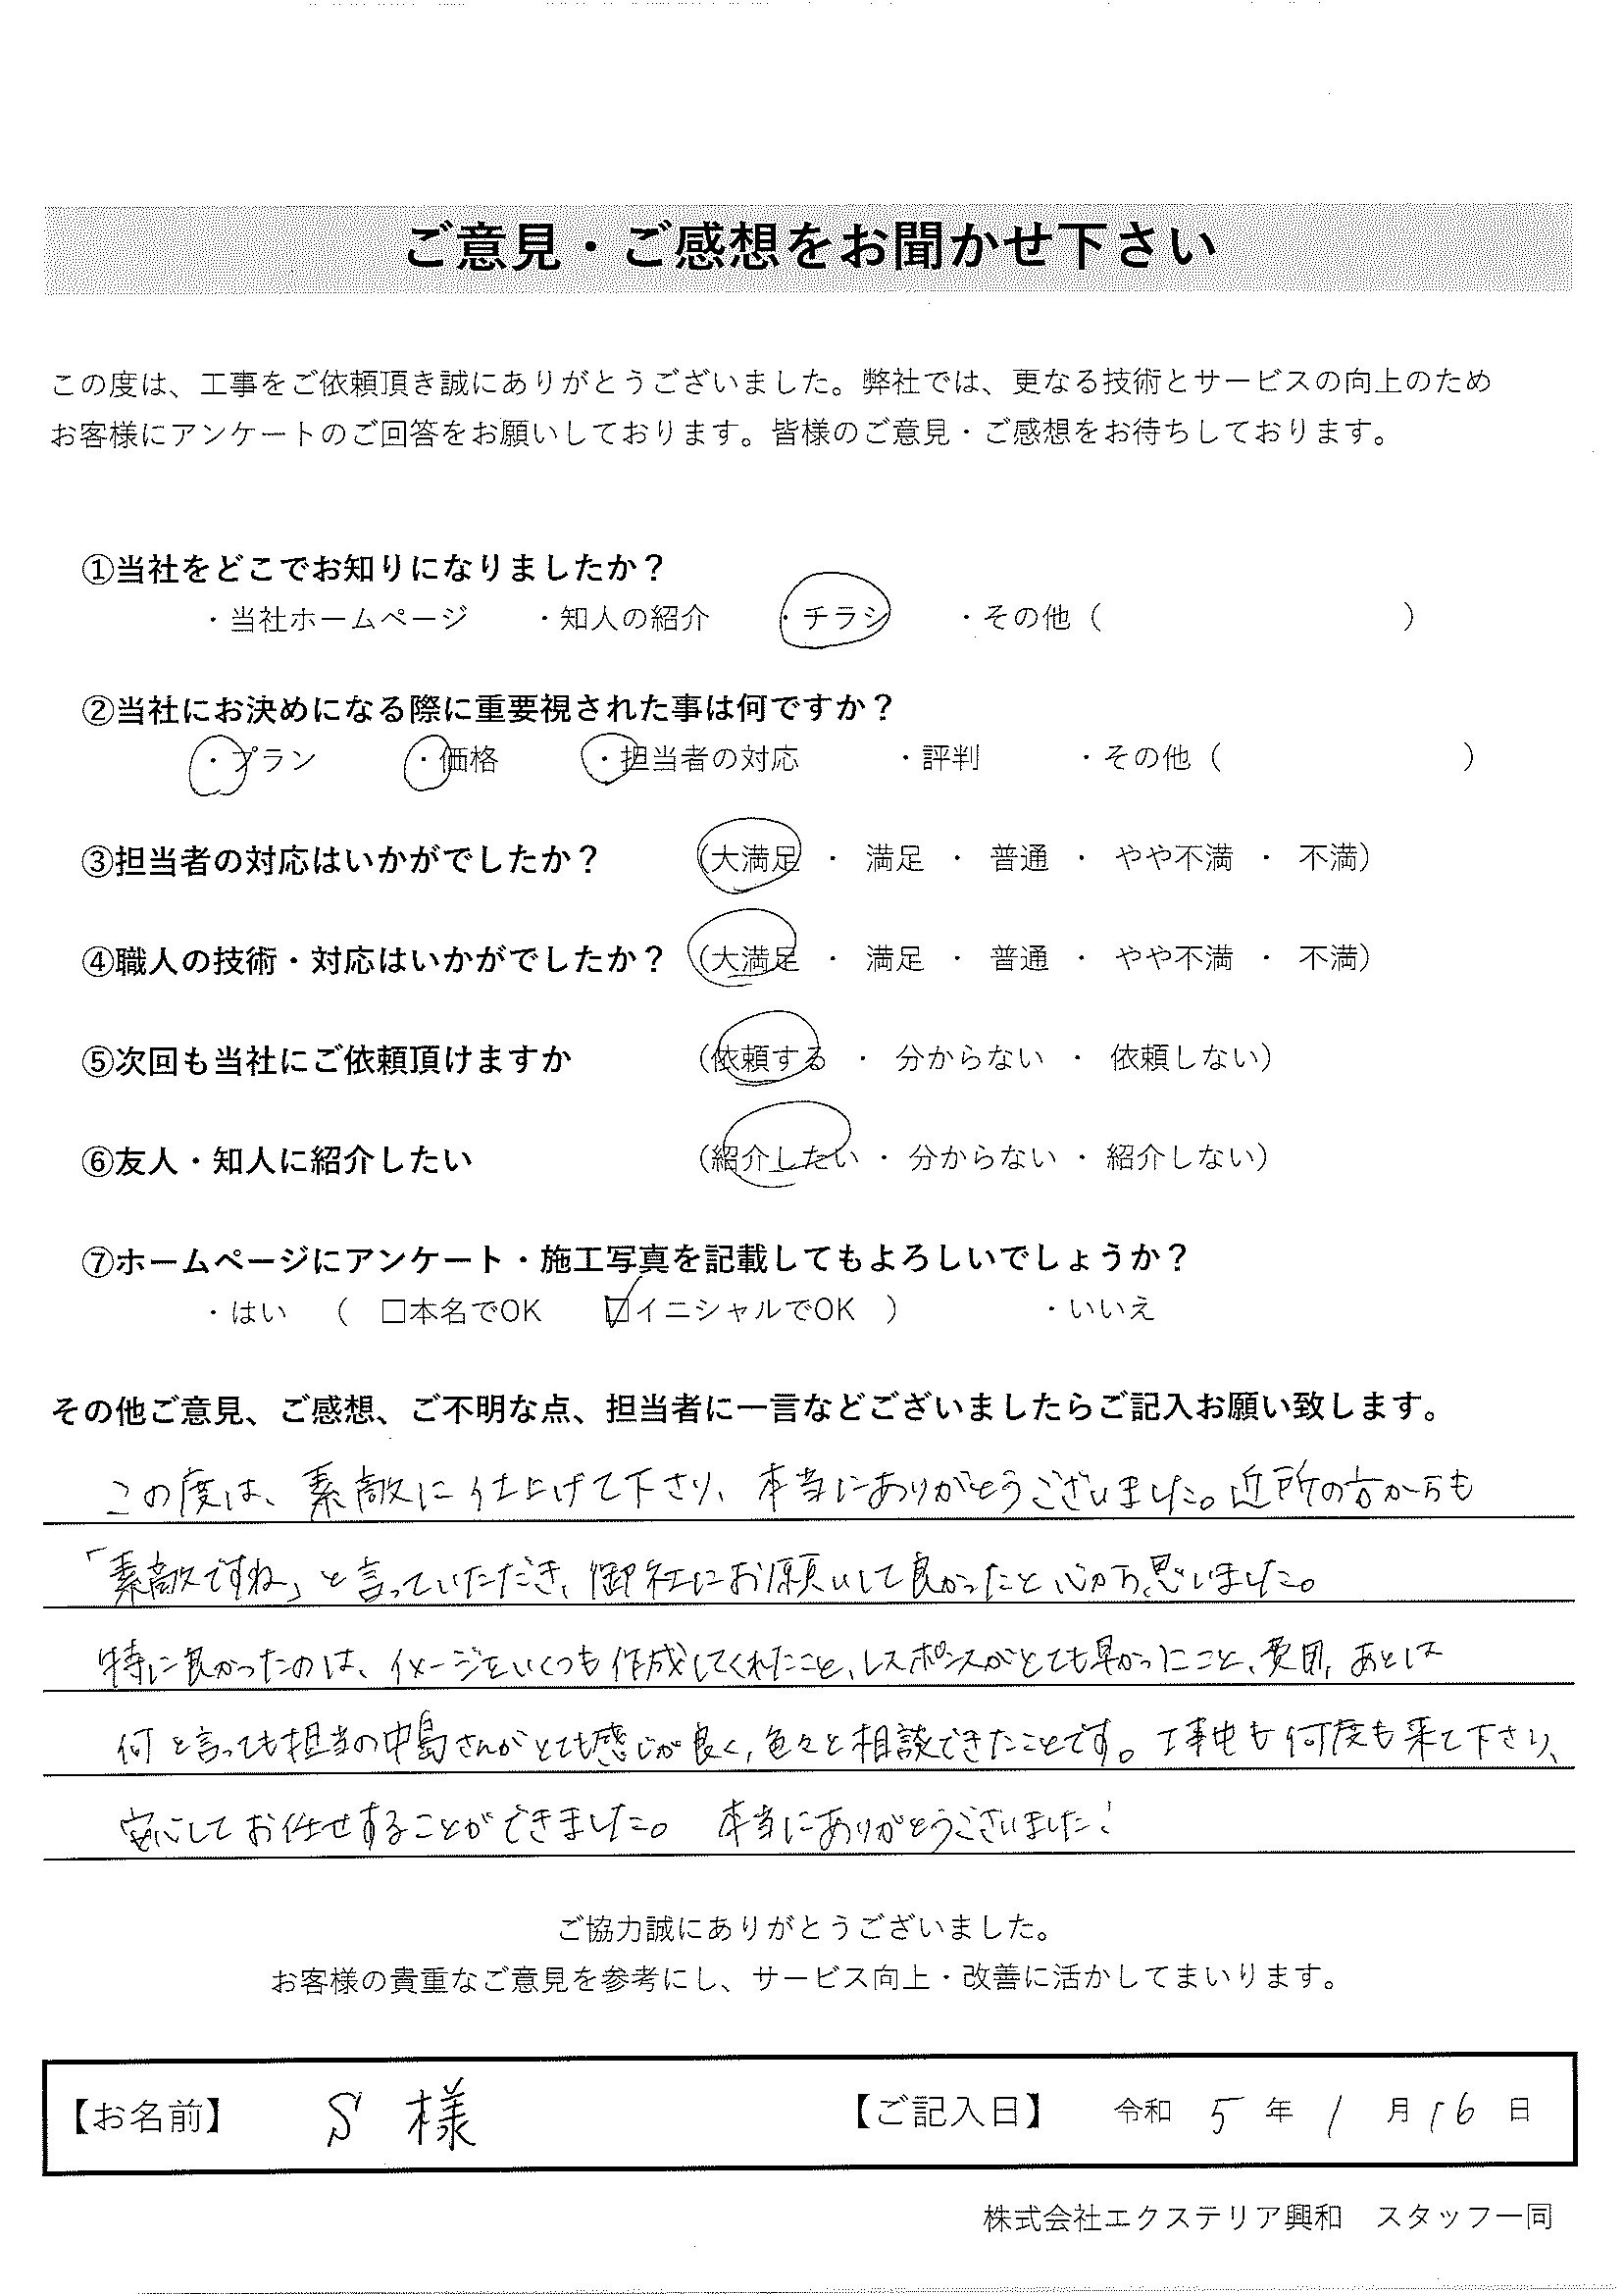 ご意見・ご感想をお聞かせ下さい
この度は、工事をご依頼頂き誠にありがとうございました。弊社では、更なる技術とサービスの向上のため
お客様にアンケートのご回答をお願いしております。皆様のご意見・ご感想をお待ちしております。
①当社をどこでお知りになりましたか？
・当社ホームページ ・知人の紹介 ・チラシ ・その他（ ）
②当社にお決めになる際に重要視された事は何ですか？
・プラン ・価格 ・担当者の対応 ・評判 ・その他（ ）
③担当者の対応はいかがでしたか？ （大満足 ・ 満足 ・ 普通 ・ やや不満 ・ 不満）
④職人の技術・対応はいかがでしたか？ （大満足 ・ 満足 ・ 普通 ・ やや不満 ・ 不満）
⑤次回も当社にご依頼頂けますか （依頼する ・ 分からない ・ 依頼しない）
⑥友人・知人に紹介したい （紹介したい ・ 分からない ・ 紹介しない）
⑦ホームページにアンケート・施工写真を記載してもよろしいでしょうか？
・はい （ □本名でOK ☑イニシャルでOK ） ・いいえ
その他ご意見、ご感想、ご不明な点、担当者に一言などございましたらご記入お願い致します。
この度は、素敵に仕上げて下さり、本当にありがとうございました。近所の方からも
「素敵ですね」と言っていただき、御社にお願いして良かったと心から思いました。
特に良かったのは、イメージをいくつも作成してくれたこと、レスポンスがとても早かったこと、費用、あとは
何と言っても担当の中島さんがとても感じが良く、色々と相談できたことです。工事中も何度も来て下さり、
安心してお任せすることができました。 本当にありがとうございました！
ご協力誠にありがとうございました。
お客様の貴重なご意見を参考にし、サービス向上・改善に活かしてまいります。
【お名前】 S 様 【ご記入日】 令和 5 年 1 月 16 日
株式会社エクステリア興和 スタッフ一同